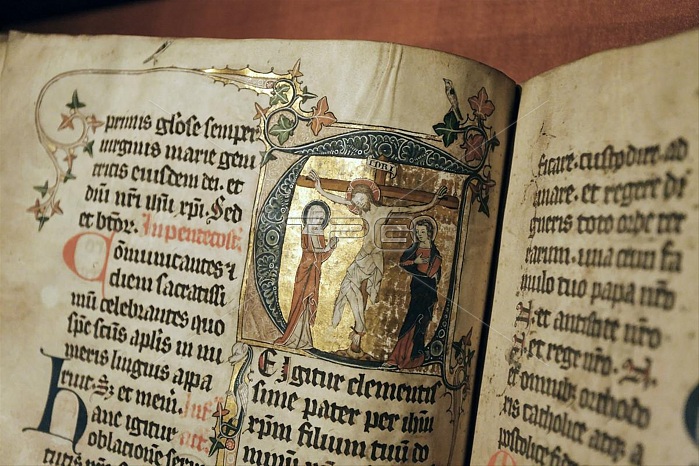 primis glose semper
virginis marie geni
tricis eiusdem dei. et
dni nri ihu xpi. Sed
et btor. In pentecost.
Comunicantes &
diem sacratissi
mu celebrantes quo
spc scus aplis in nu
meris liguis appa
ruit. Sz et mem.
hanc igitur
oblatione
Te Igitur clementis
sime pater per ihm
xpm filium tuu do
ficare. custodire. ad
unare. et regere di
gneris toto orbe ter
rarum. una cum fa
mulo tuo papa nro
N. et antistite nro
N. et rege nro. N.
et omnibz orthodo
xis catholice atqz a
postolice